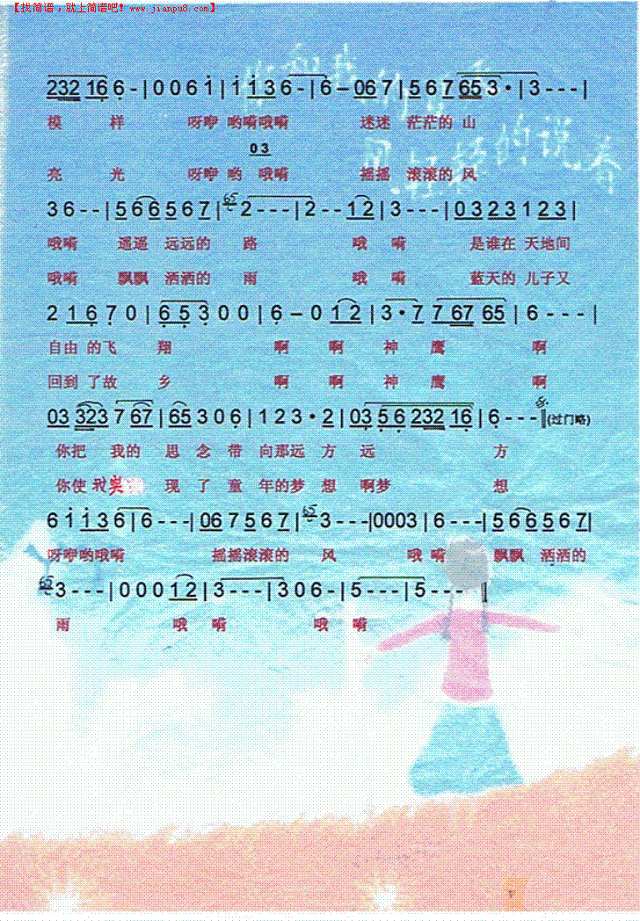 【找简谱，就上简谱吧! www.jianpu8.com】
232 16 6 - | 0 0 6 1 | 1 1 3 6 - | 6 - 0 6 7 | 5 6 7 6 5 3 · | 3 - - - |
模 样 呀咿 哟嗬哦嗬 迷迷 茫茫的 山
0 3
亮 光 呀咿 哟 哦嗬 摇摇 滚滚的 风
的说着
3 6 - - | 5 6 6 5 6 7 | 65 2 - - - | 2 - - 1 2 | 3 - - - | 0 3 2 3 1 2 3 |
哦嗬 遥遥 远远的 路 哦 嗬 是谁在 天地间
哦嗬 飘飘 洒洒的 雨 哦 嗬 蓝天的 儿子又
2 1 6 7 0 | 6 5 3 0 0 | 6 - 0 1 2 | 3 · 7 7 67 65 | 6 - - - |
自由 的飞 翔 啊 啊 神 鹰 啊
回到 了故 乡 啊 啊 神 鹰 啊
03 323 7 67 | 65 3 0 6 | 1 2 3 · 2 | 03 56 232 16 | 6 - - - ‖(过门略)
你把 我的 思 念 带 向那远 方 远 方
你使 我 实 现 了 童 年的梦 想 啊梦 想
6 1 1 3 6 | 6 - - - | 0 6 7 5 6 7 | 65 3 - - - | 0 0 0 3 | 6 - - - | 5 6 6 5 6 7 |
呀咿哟哦嗬 摇摇滚滚的 风 哦 嗬 飘飘 洒洒的
65 3 - - - | 0 0 0 1 2 | 3 - - - | 3 0 6 - | 5 - - - | 5 - - - ‖
雨 哦 嗬 哦 嗬